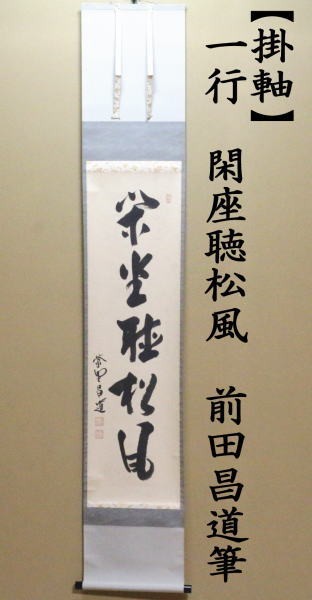 【掛軸】
一行 閑座聴松風 前田昌道筆
閑坐聴松風
紫野昌道